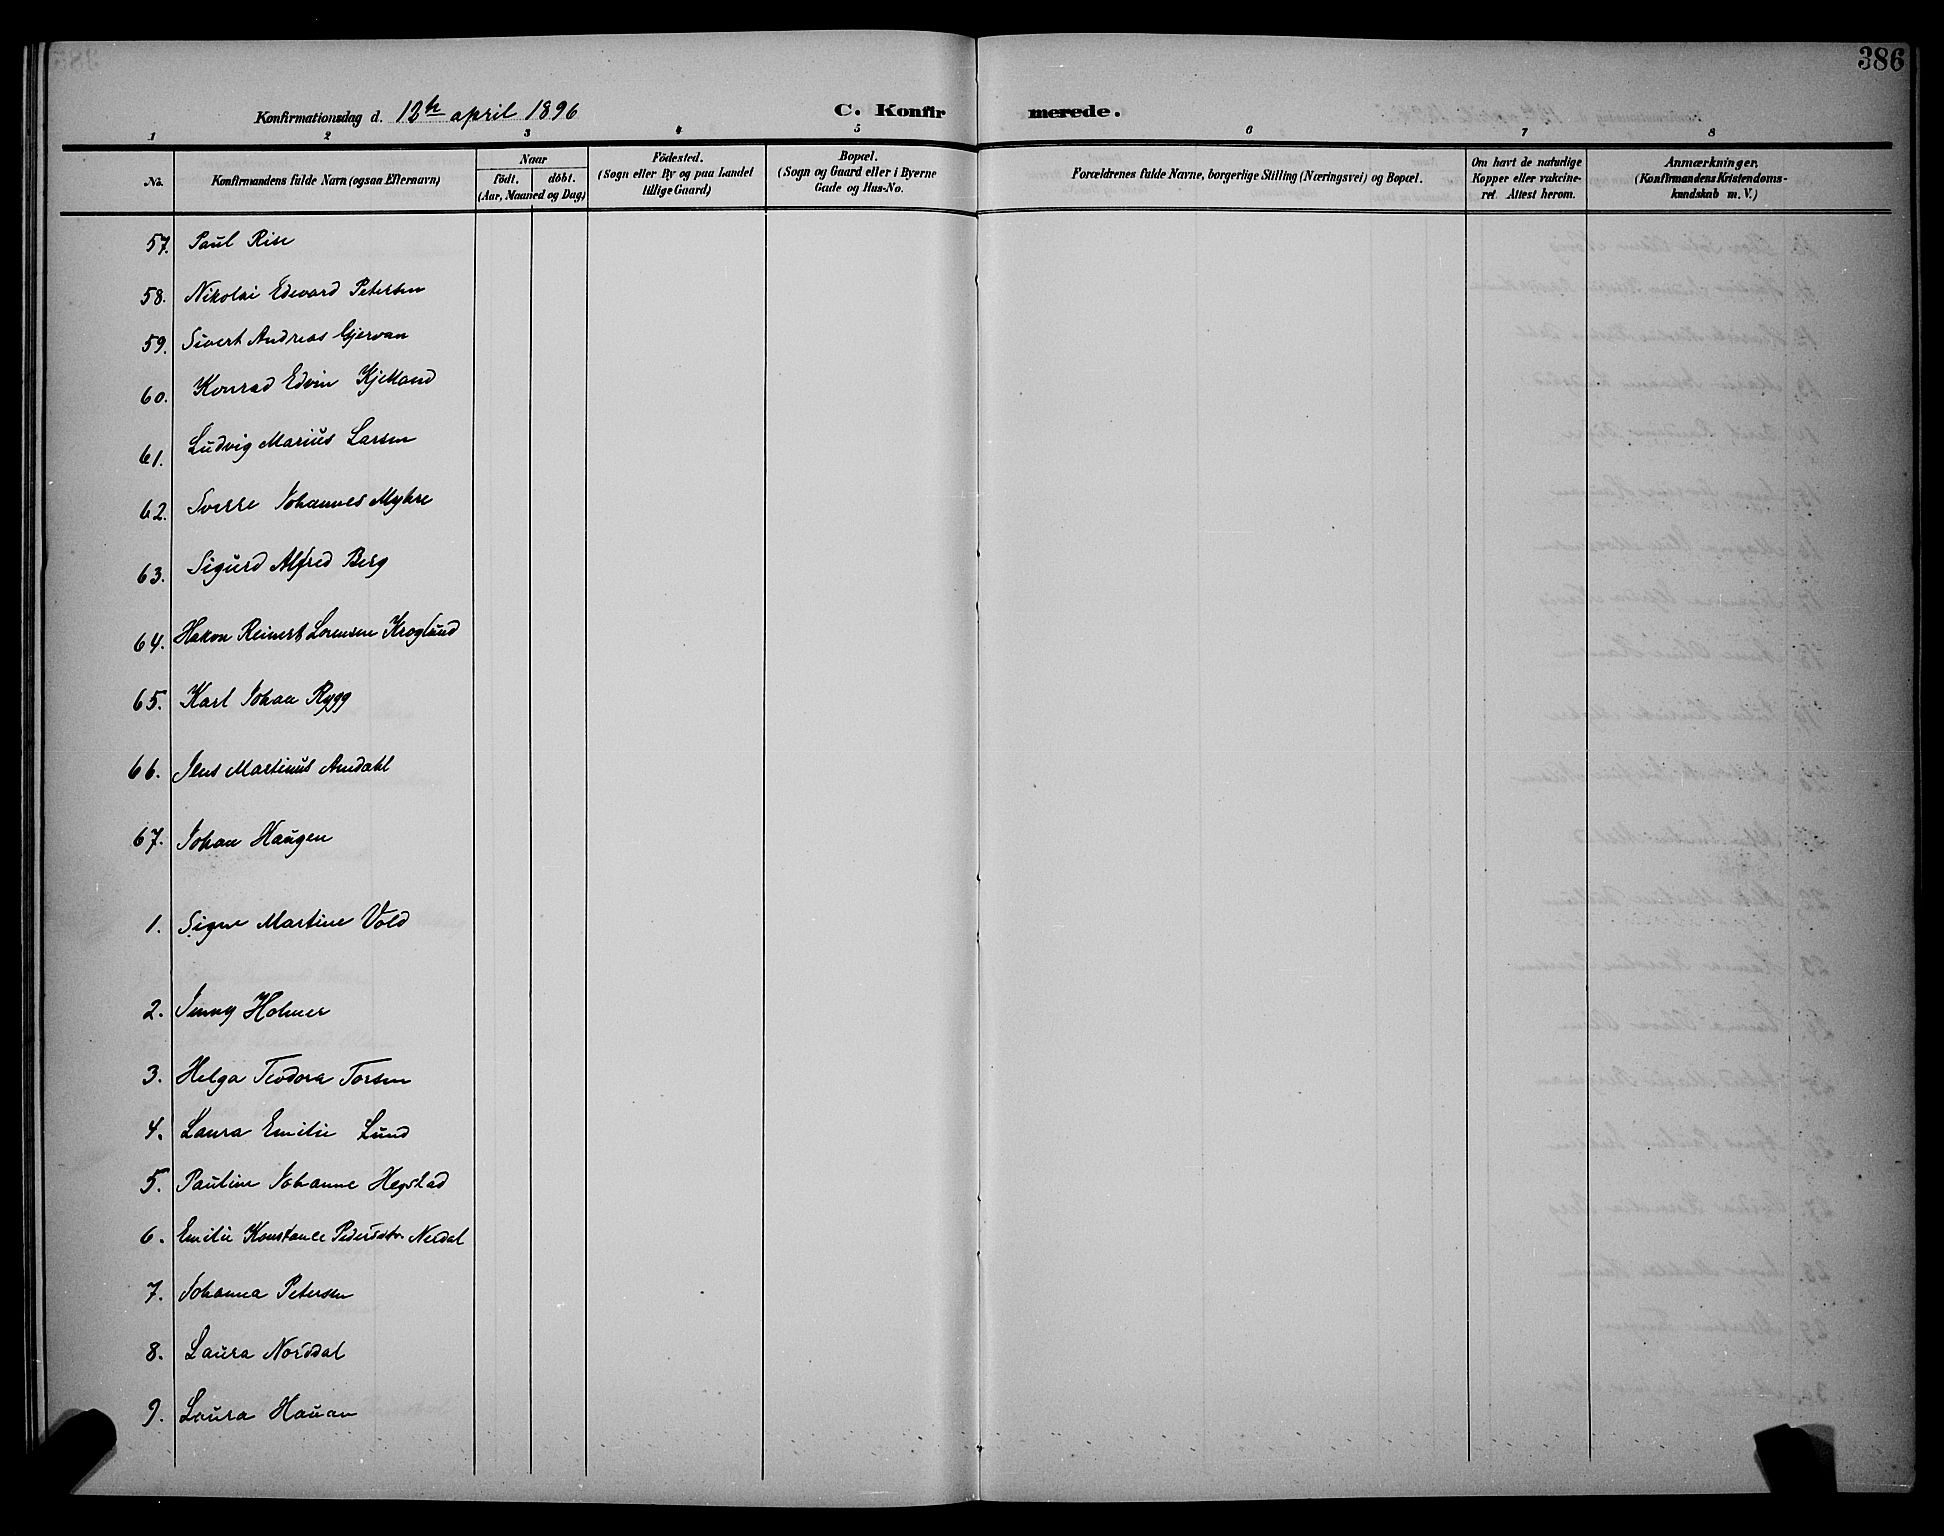 386
Konfirmationsdag d. 12te april 1896
C. Konfirmerede.
1 2 3 4 5 6 7 8
No.
Konfirmandens fulde Navn (ogsaa Efternavn)
Naar
födt. döbt.
(Aar, Maaned og Dag)
Födested.
(Sogn eller By og paa Landet
tillige Gaard)
Bopæl.
(Sogn og Gaard eller i Byerne
Gade og Hus-No.
Forældrenes fulde Navne, borgerlige Stilling (Næringsvei) og Bopæl.
Om havt de naturlige
Kopper eller vakcine-
ret. Attest herom.
Anmærkninger.
(Konfirmandens Kristendoms-
kundskab m. V.)
57. Paul Rise
58. Nikolai Edevard Petersen
59. Sivert Andreas Gjervan
60. Konrad Edvin Kjelland
61. Ludvig Marius Larsen
62. Sverre Johannes Myhre
63. Sigurd Alfred Berg
64. Hakon Reinert Lorensen Kroglund
65. Karl Johan Rygg
66. Jens Martinus Amdahl
67. Johan Haugen
1. Signe Martine Vold
2. Jenny Holmer
3. Helga Teodora Torsen
4. Laura Emilie Lund
5. Pauline Johanne Hegstad
6. Emilie Konstance Pedersdtr. Nerdal
7. Johanna Petersen
8. Laura Norddal
9. Laura Hauan